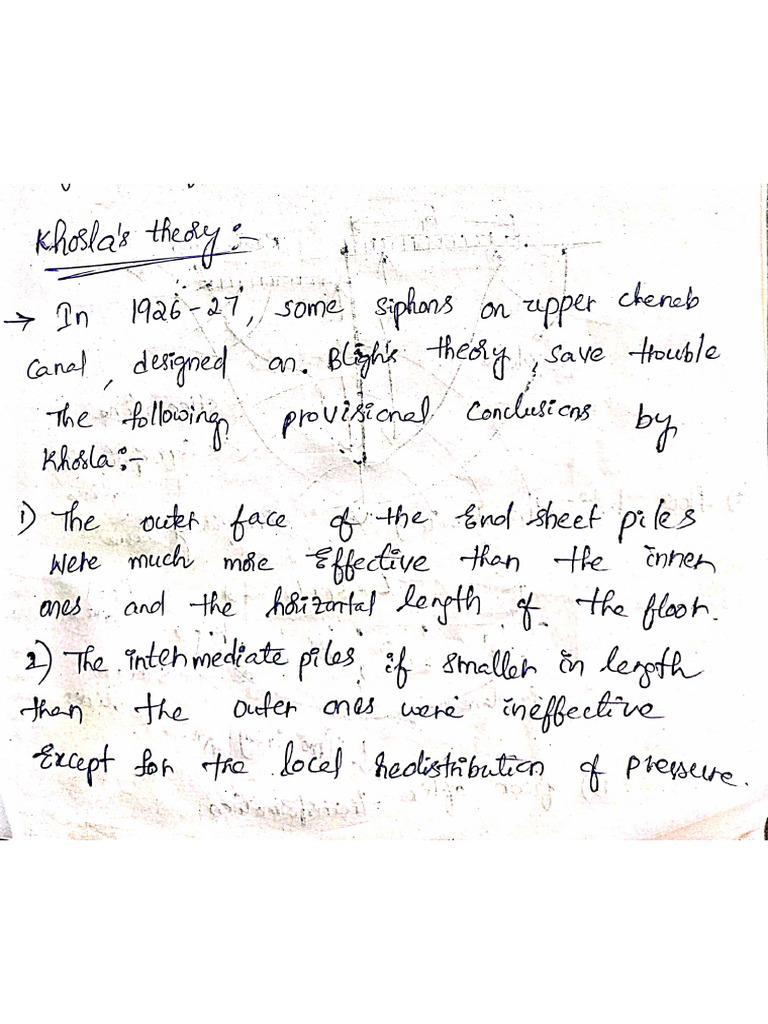 Khosla's theory :-
→ In 1926-27, some siphons on upper cheneb
Canal, designed on. Bligh's theory, save trouble
The following provisional Conclusions by
Khosla :-
1) The outer face of the End sheet piles
were much more Effective than the inner
ones and the horizontal length of the floor.
2) The intermediate piles if smaller in length
than the outer ones were ineffective
Except for the local redistribution of pressure.